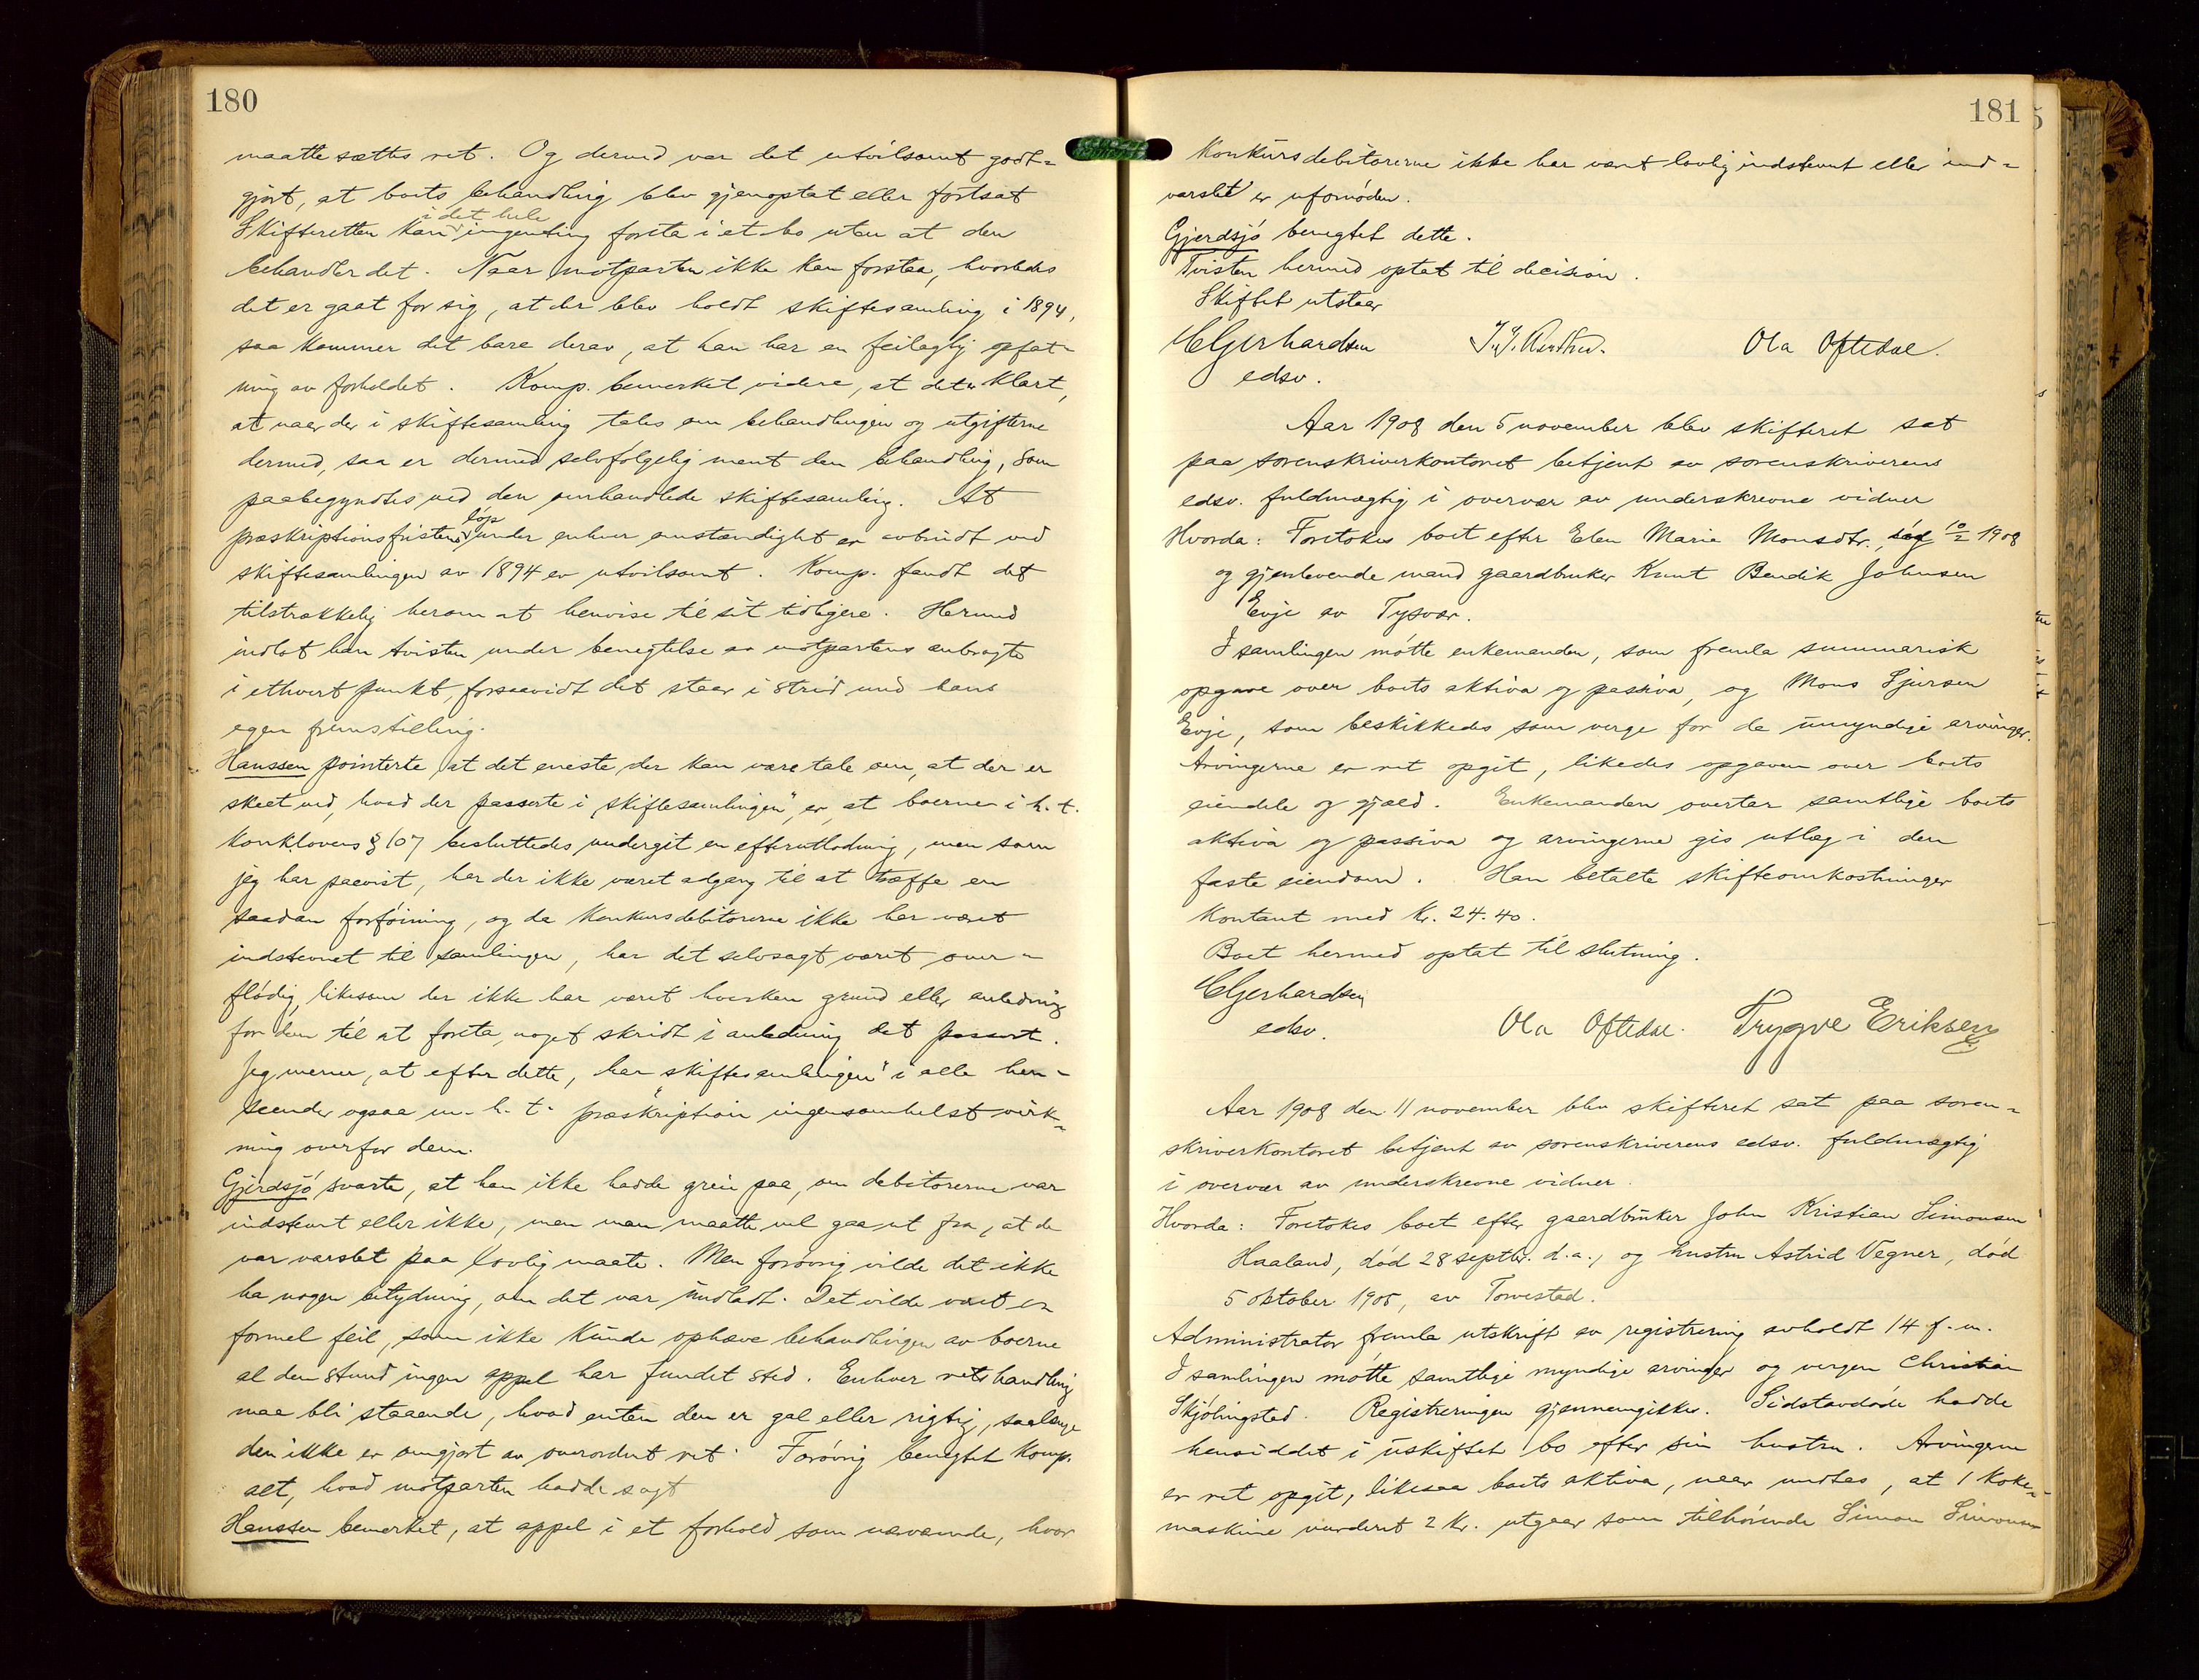 180
maatte sættes ret. Og dermed var det utvilsomt godt=
gjort, at boets behandling blev gjenoptat eller fortsat
i det hele
Skifteretten kan ingenting foreta i et bo uten at den
behandler det. Naar motparten ikke kan forstaa, hvorledes
det er gaat for sig, at der blev holdt skiftesamling i 1894,
saa kommer det bare derav, at han har en feilagtig opfat-
ning av forholdet. Komp. bemerket videre, at det er klart,
at naar der i skiftesamling tales om behandlingen og utgifterne
dermed, saa er dermed selvfølgelig ment den behandling, som
paabegyndtes ved den omhandlede skiftesamling. At
løp
præskriptionsfristens under enhver omstændighet er avbrudt ved
skiftesamlingen av 1894 er utvilsomt. Komp. fandt det
tilstrækkelig herom at henvise til sit tidligere. Hermed
indlot han tvisten under benegtelse av motpartens anbragte
i ethvert punkt, forsaavidt det staar i strid med hans
egen fremstilling.
Hanssen pointerte, at det eneste der kan være tale om, at der er
skeet ved, hvad der passerte i "skiftesamlingen", er, at boerne i h. t.
konklovens § 107 besluttedes undergit en efterutlodning, men som
jeg har paavist, har der ikke været adgang til at træffe en
saadan forføining, og da konkursdebitorerne ikke har været
indstevnet til samlingen, har det selvsagt været over-
flødig, likesom der ikke har været hverken grund eller anledning
for dem til at foreta noget skridt i anledning det passert.
Jeg mener, at efter dette, har "skiftesamlingen" i alle hen-
seender ogsaa m. h. t. præskription ingensomhelst virk-
ning overfor dem.
Gjerdsjø svarte, at han ikke hadde greie paa, om debitorerne var
indstevnt eller ikke, men man maatte vel gaa ut fra, at de
var varslet paa lovlig maate. Men forøvrig vilde det ikke
ha nogen betydning, om det var undladt. Det vilde været en
formel feil, som ikke kunde ophæve behandlingen av boerne
al den stund ingen appel har fundet sted. Enhver retshandling
maa bli staaende, hvad enten den er gal eller rigtig, saalenge
den ikke er omgjort av overordnet ret. Forøvrig benegtet komp.
alt, hvad motparten hadde sagt
Hanssen bemerket, at appel i et forhold som nærværende, hvor
181
konkursdebitorerne ikke har vært lovlig indstevnt eller ind=
varslet er ufornøden.
Gjerdsjø benegtet dette.
Tvisten hermed optat til decision.
Skiftet utstaar
CGerhardsen Ola Oftedal.
edsv.
Aar 1908 den 5 november blev skifteret sat
paa sorenskriverkontoret betjent av sorenskriverens
edsv. fuldmægtig i overvær av underskrevne vidner
Hvorda: Foretokes boet efter Elen Marie Monsdtr. død 10/2 1908
og gjenlevende mand gaardbruker Knut Bendik Johnsen
Evje av Tysvær.
I samlingen møtte enkemanden, som fremla summarisk
opgave over boets aktiva og passiva, og Mons Sjursen
Evje, som beskikkedes som verge for de umyndige arvinger.
Arvingerne er ret opgit, likedes opgaven over boets
eiendele og gjæld. Enkemanden overtar samtlige boets
aktiva og passiva og arvingerne gis utlæg i den
faste eiendom. Han betalte skifteomkostninger
kontant med Kr. 24.40.
Boet hermed optat til slutning.
CGerhardsen
edsv. Ola Oftedal. Trygve Eriksen
Aar 1908 den 11 november blev skifteret sat paa soren=
skriverkontoret betjent av sorenskriverens edsv. fuldmægtig
i overvær av underskrevne vidner.
Hvorda: Foretokes boet efter gaardbruker John Kristian Simonsen
Haaland, død 28 septbr. d.a., og hustru Astrid Vegner, død
5 oktober 1905, av Torvestad.
Administrator fremla utskrift av registrering avholdt 14 f. m.
I samlingen møtte samtlige myndige arvinger og vergen Christian
Skjølingstad. Registreringen gjennemgikkes. Sidstavdøde hadde
hensiddet i uskiftet bo efter sin hustru. Arvingerne
er ret opgit, likesaa boets aktiva, naar undtas, at 1 koke=
maskine vurderet 2 Kr. utgaar som tilhørende Simon Simonsen